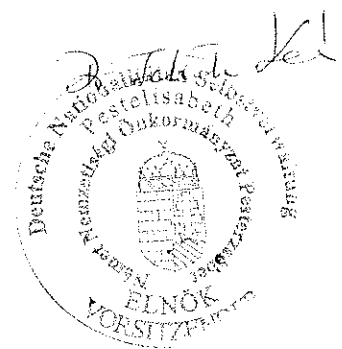 Deutsche Nationalitäten Selbstverwaltung
Pestelisabeth
Német Nemzetiségi Önkormányzat Pesterzsébet
ELNÖK
VORSITZENDER